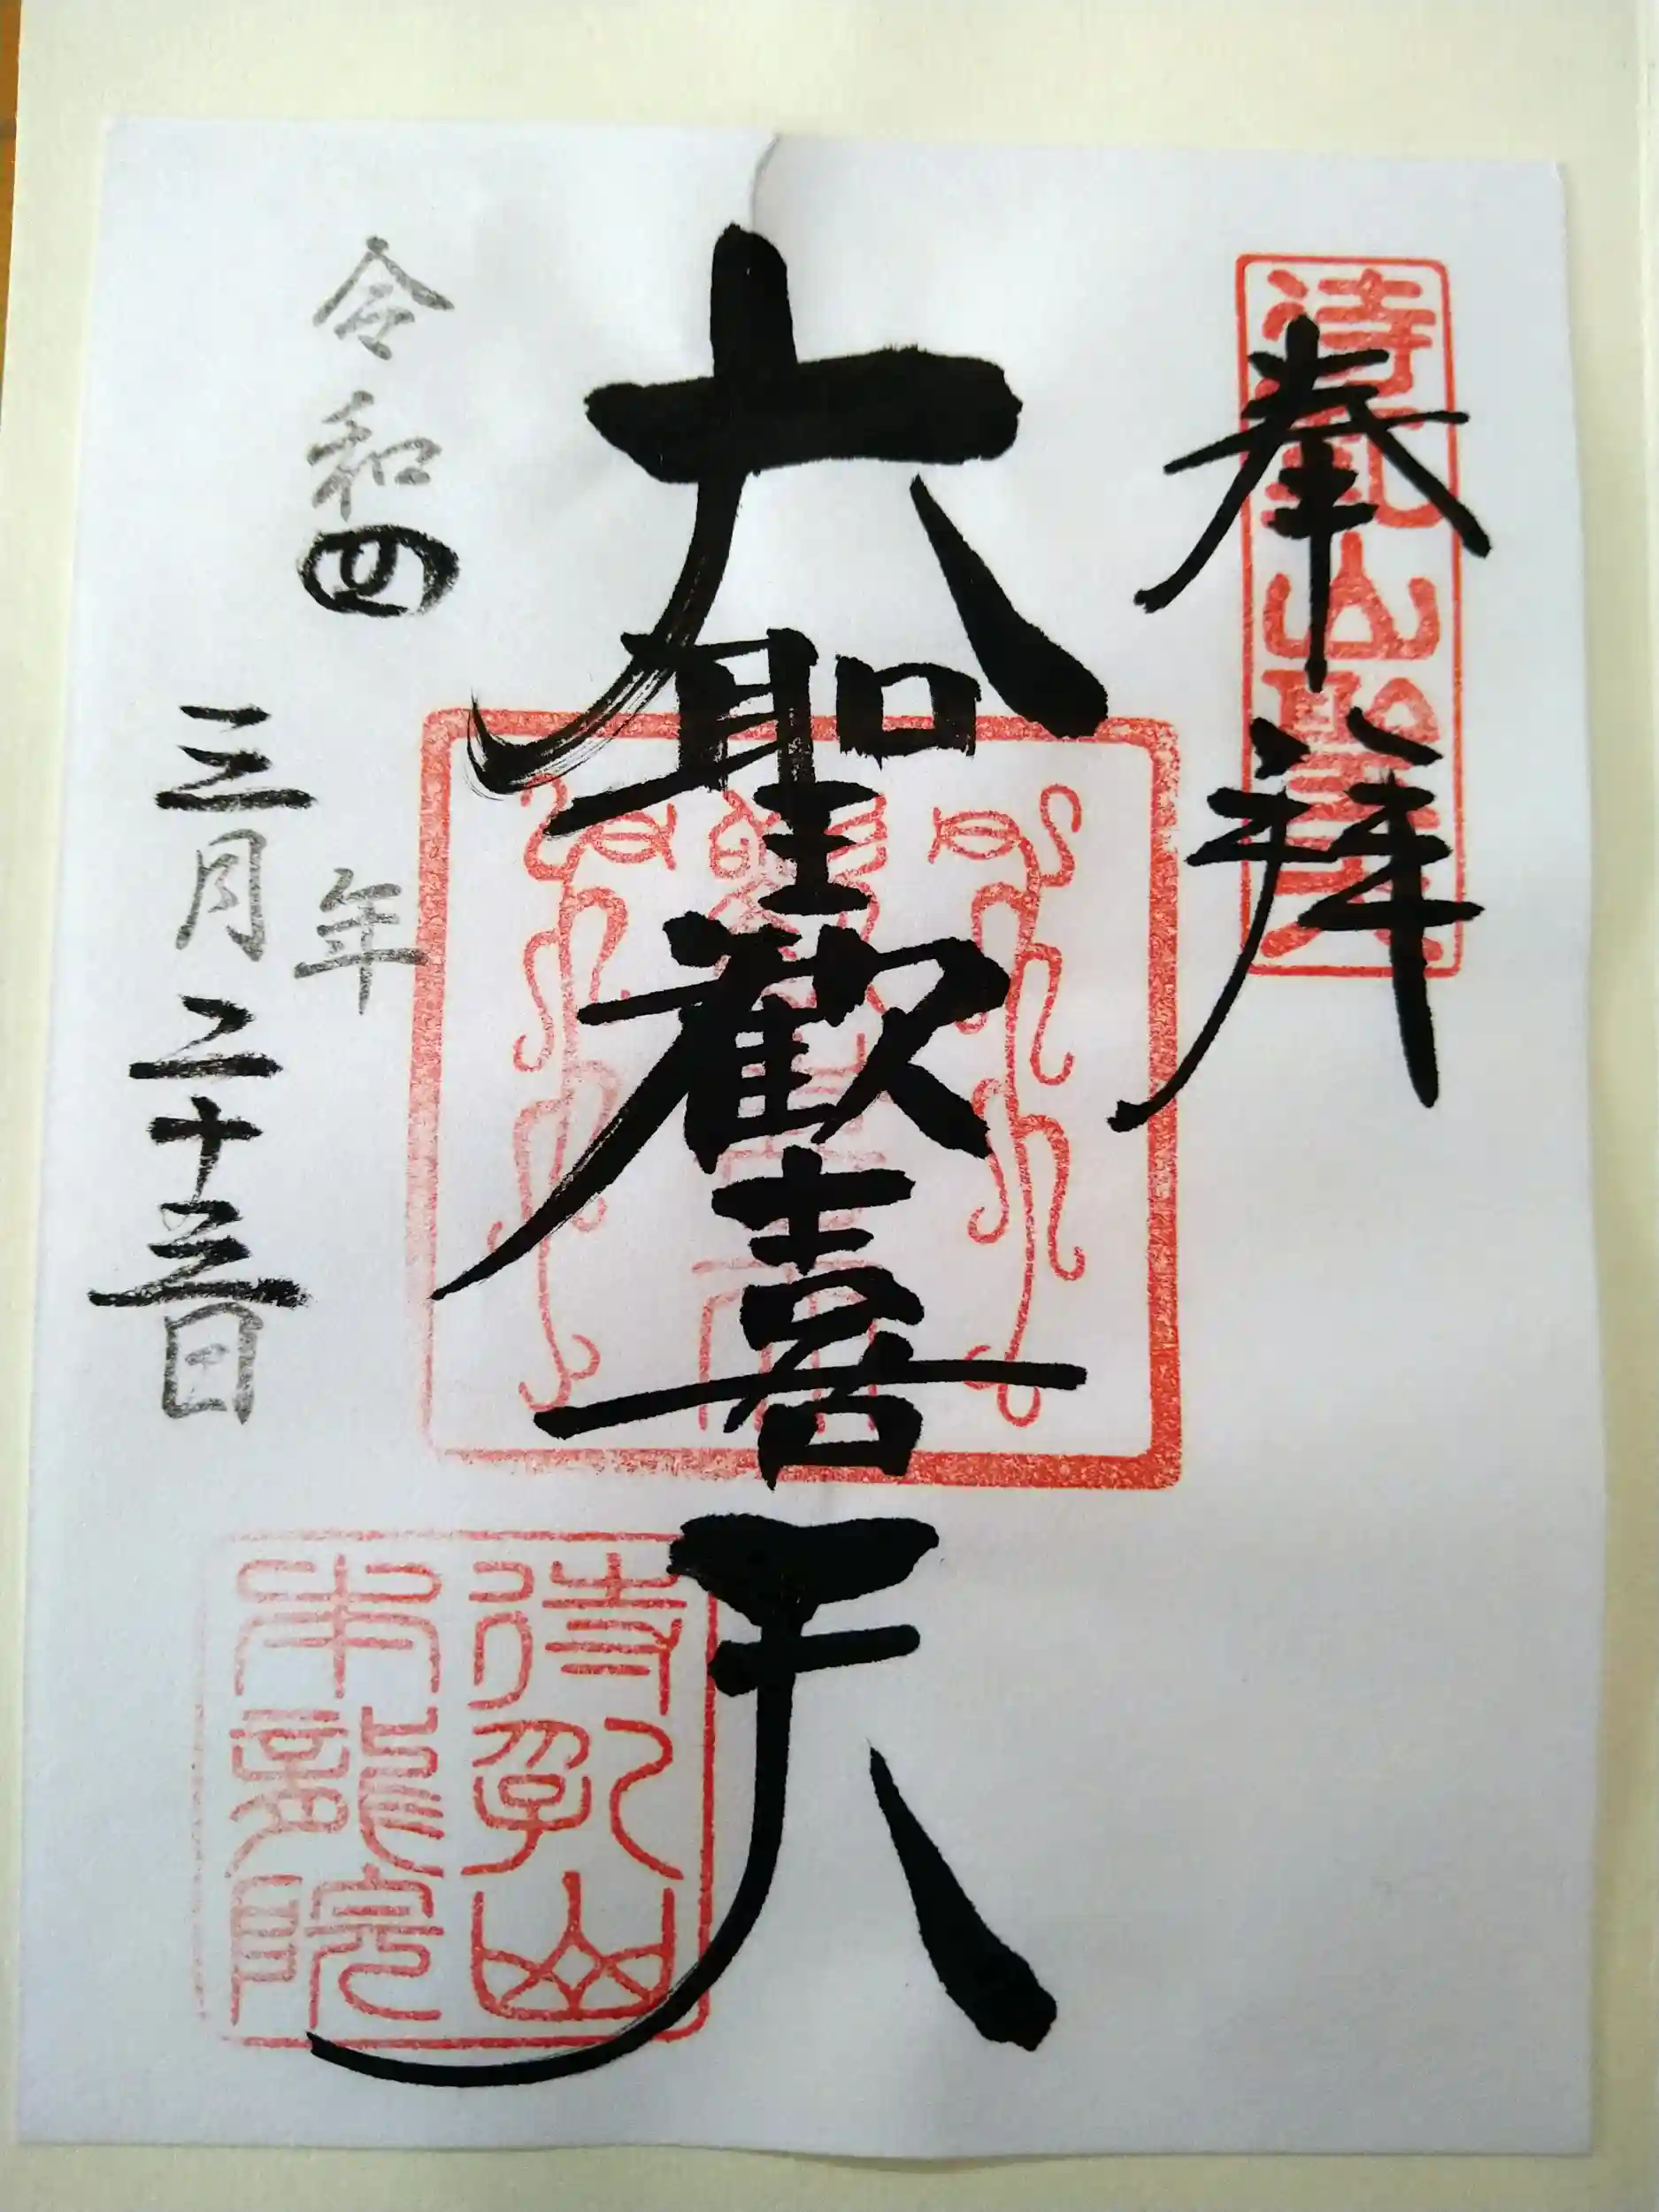 待乳山聖天
奉拝
大聖歓喜天
待乳山
本龍院
令和四年
三月二十三日